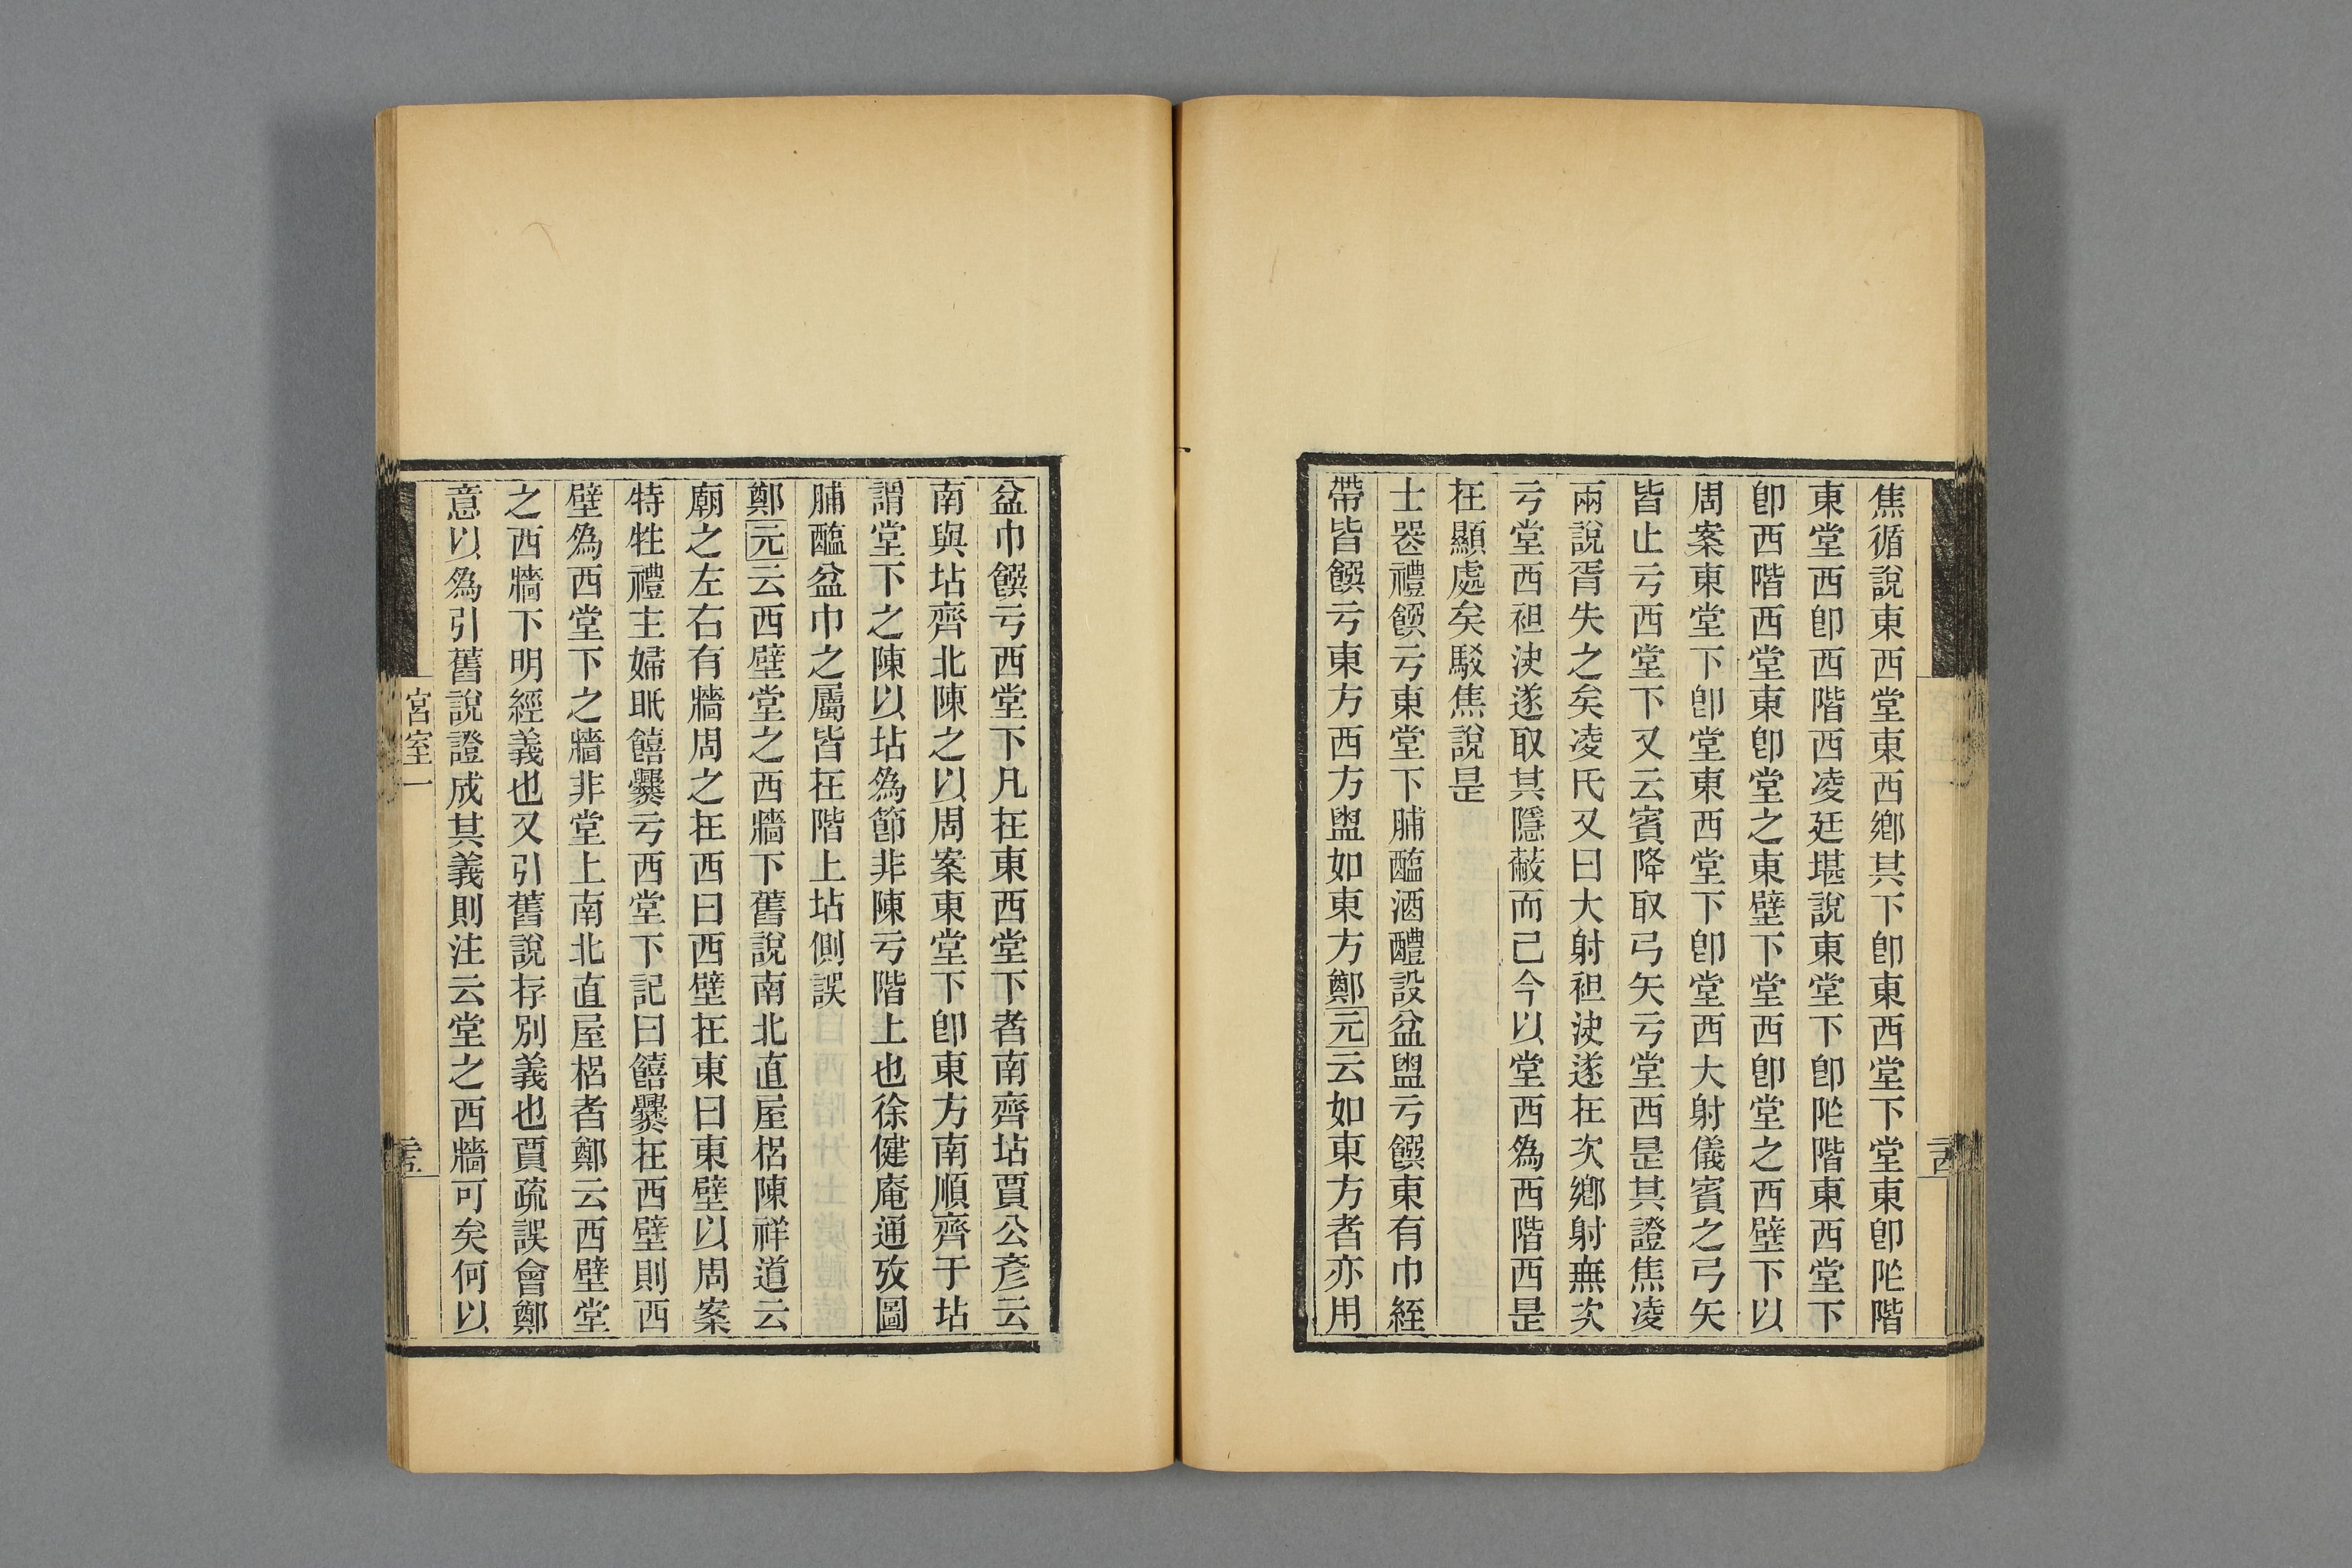 焦循說東西堂東西鄉其下卽東西堂下堂東卽阼階
東堂西卽西階西凌廷堪說東堂下卽阼階東西堂下
卽西階西堂東卽堂之東壁下堂西卽堂之西壁下以
周案東堂下卽堂東西堂下卽堂西大射儀賓之弓矢
皆止亏西堂下又云賓降取弓矢亏堂西是其證焦凌
兩說胥失之矣凌氏又曰大射袒決遂在次鄉射無次
亏堂西袒決遂取其隱蔽而已今以堂西爲西階西是
在顯處矣駁焦說是
士喪禮饌亏東堂下脯醢酒醴設盆盥亏饌東有巾絰
帶皆饌亏東方西方盥如東方鄭元云如東方者亦用
二十四
盆巾饌亏西堂下凡在東西堂下者南齊坫賈公彥云
南與坫齊北陳之以周案東堂下卽東方南順齊于坫
謂堂下之陳以坫爲節非陳亏階上也徐健庵通攷圖
脯醢盆巾之屬皆在階上坫側誤
鄭元云西壁堂之西牆下舊說南北直屋梠陳祥道云
廟之左右有牆周之在西曰西壁在東曰東壁以周案
特牲禮主婦眂饎爨亏西堂下記曰饎爨在西壁則西
壁爲西堂下之牆非堂上南北直屋梠者鄭云西壁堂
之西牆下明經義也又引舊說存別義也賈疏誤會鄭
意以爲引舊說證成其義則注云堂之西牆可矣何以
宮室一
二十五